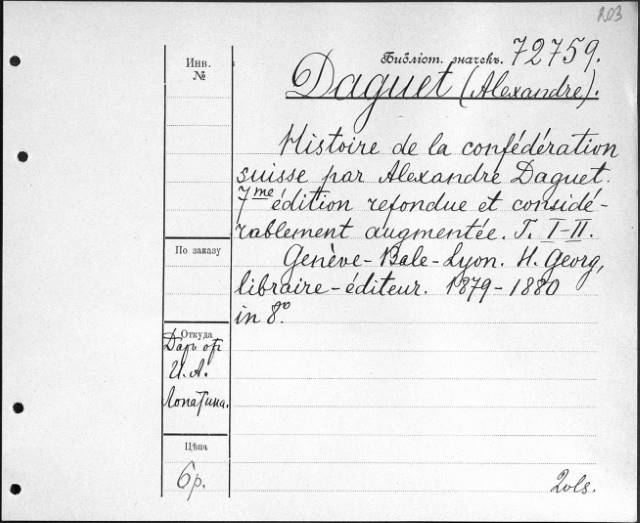 203
Библіот. значекъ. 72759.
Инв.
№
Daguet (Alexandre).
Histoire de la confédération
suisse par Alexandre Daguet.
7me édition refondue et considé-
rablement augmentée. T. I-II.
Genève-Bale-Lyon. H. Georg,
По заказу
libraire-éditeur. 1879-1880
in 8º.
Откуда
Даръ от
И. А.
Лопатина.
Цѣна
6р.
2vls.